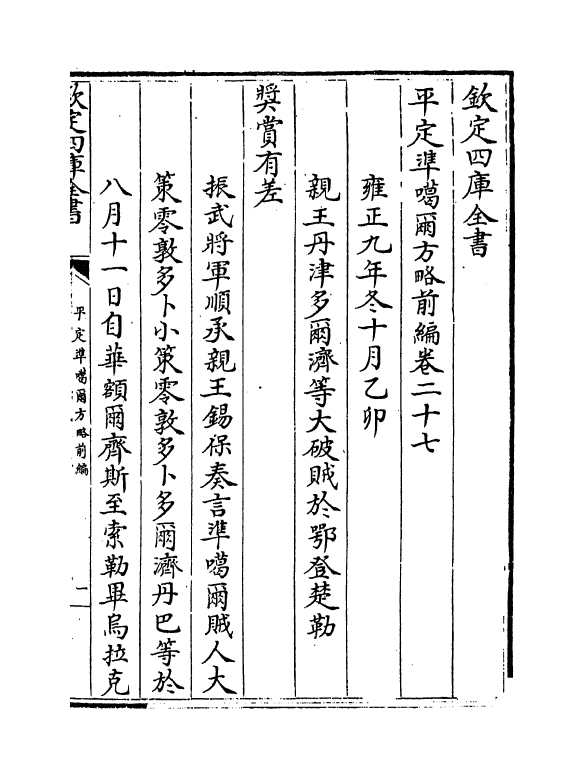 欽定四庫全書
平定準噶爾方略前編卷二十七
雍正九年冬十月乙卯
親王丹津多爾濟等大破賊於鄂登楚勒
奬賞有差
振武將軍順承親王錫保奏言準噶爾賊人大
策零敦多卜小策零敦多卜多爾濟丹巴等於
八月十一日自華額爾齊斯至索勒畢烏拉克
欽定四庫全書
平定準噶爾方略前編
一